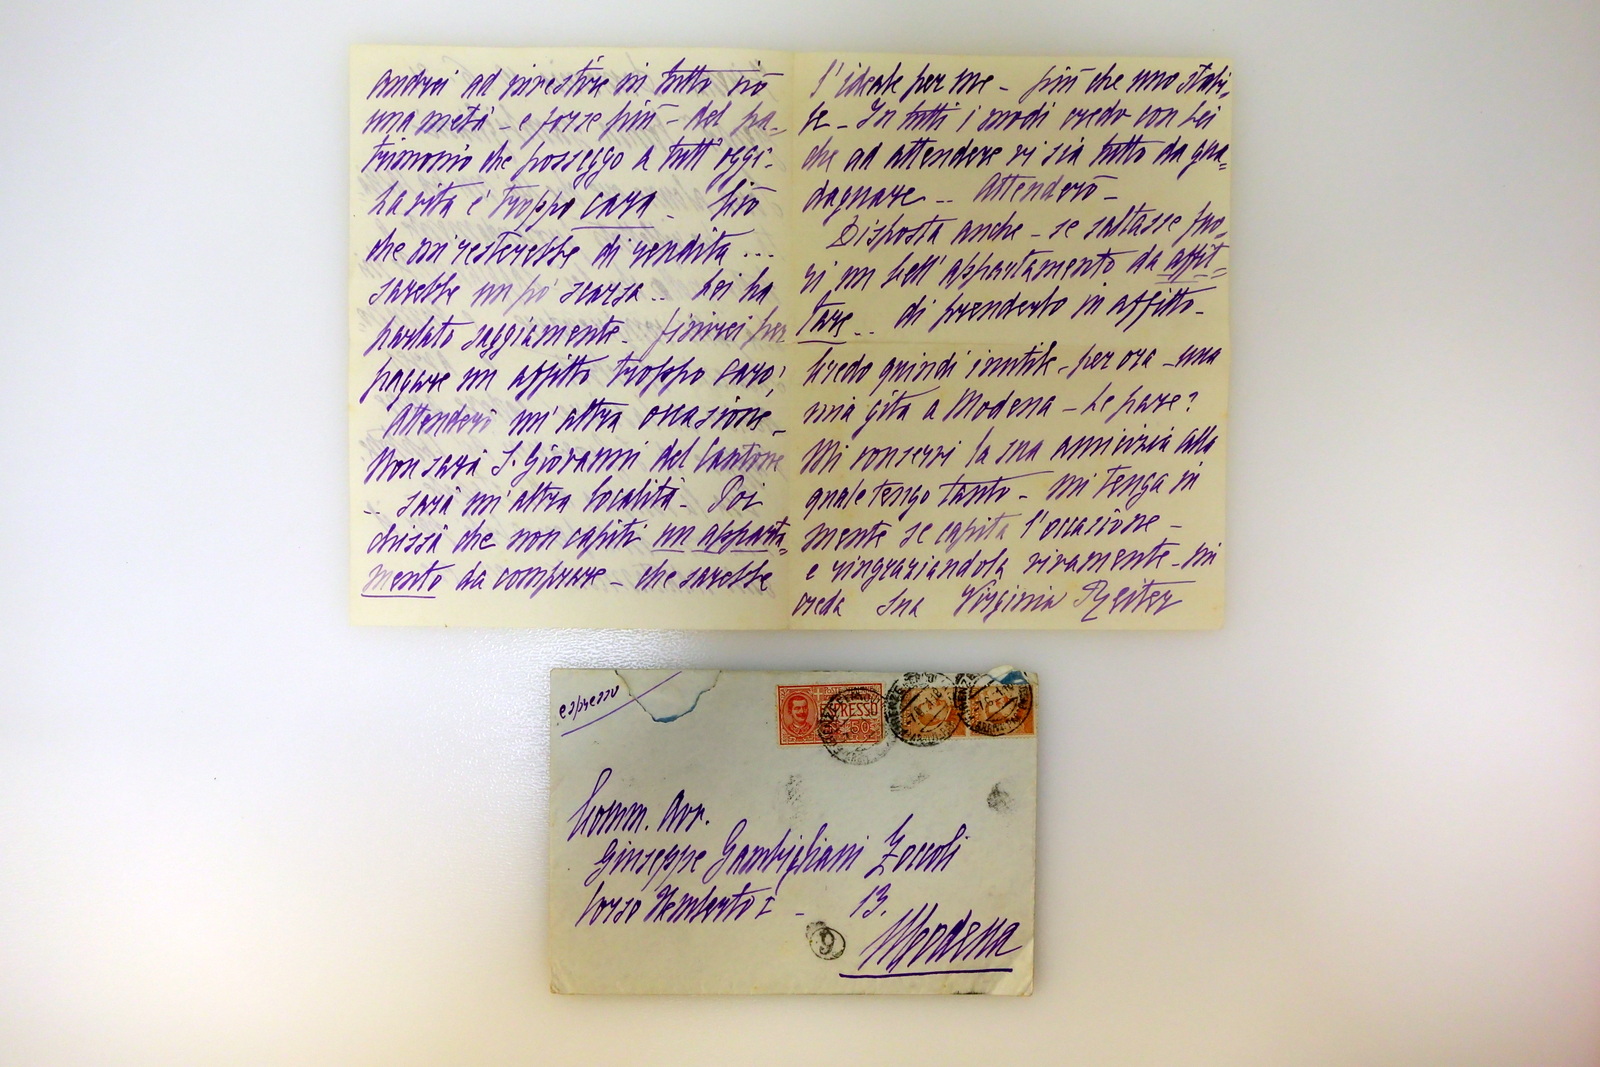 andrei ad investire in tutto ciò
una metà - e forse più - del pa-
trimonio che posseggo a tutt'oggi.
La vita è troppo cara - Ciò
che mi resterebbe di rendita ...
sarebbe un pò scarsa .. Lei ha
parlato saggiamente. finirei per
pagare un affitto troppo caro;
Attenderò un'altra occasione -
Non sarà S. Giovanni del Cantone
.. sarà un'altra località - Poi
chissà che non capiti un apparta-
mento da comprare - che sarebbe
l'ideale per me - più che uno stabi-
le - In tutti i modi credo con Lei
che ad attendere vi sia tutto da gua-
dagnare .. Attenderò -
Disposta anche - se saltasse fuo-
ri un bell'appartamento da affit-
tare .. di prenderlo in affitto -
Credo quindi inutile - per ora - una
mia gita a Modena - Le pare?
Mi conservi la sua amicizia alla
quale tengo tanto - mi tenga in
mente se capita l'occasione -
e ringraziandola vivamente - mi
creda sua Virginia Reiter
espresso
ESPRESSO
50
Comm. Avv.
Giuseppe Gambigliani Zoccoli
Corso Umberto I - 13.
9
Modena